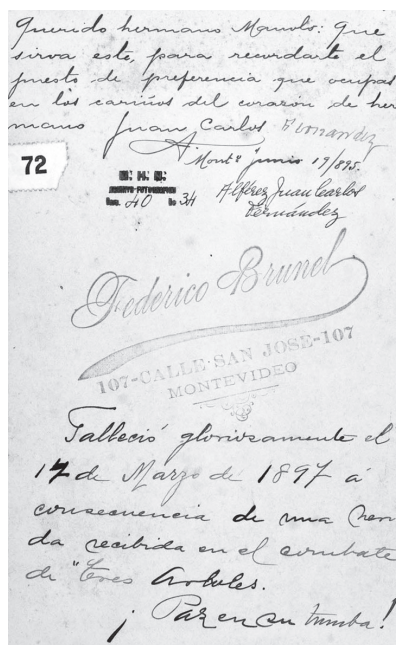 Querido hermano Manolo: Que
sirva este, para recordarte el
puesto de preferencia que ocupas
en los cariños del corazón de her
mano Juan Carlos Fernandez
Montº Junio 19/895.
72
M. H. N.
ARCHIVO FOTOGRAFICO
40 34
Alférez Juan Carlos
Fernández
Federico Brunel
107-CALLE SAN JOSE-107
MONTEVIDEO
Falleció gloriosamente el
17 de Marzo de 1897 á
consecuencia de una heri
da recibida en el combate
de "Tres Arboles.
¡Paz en su tumba!